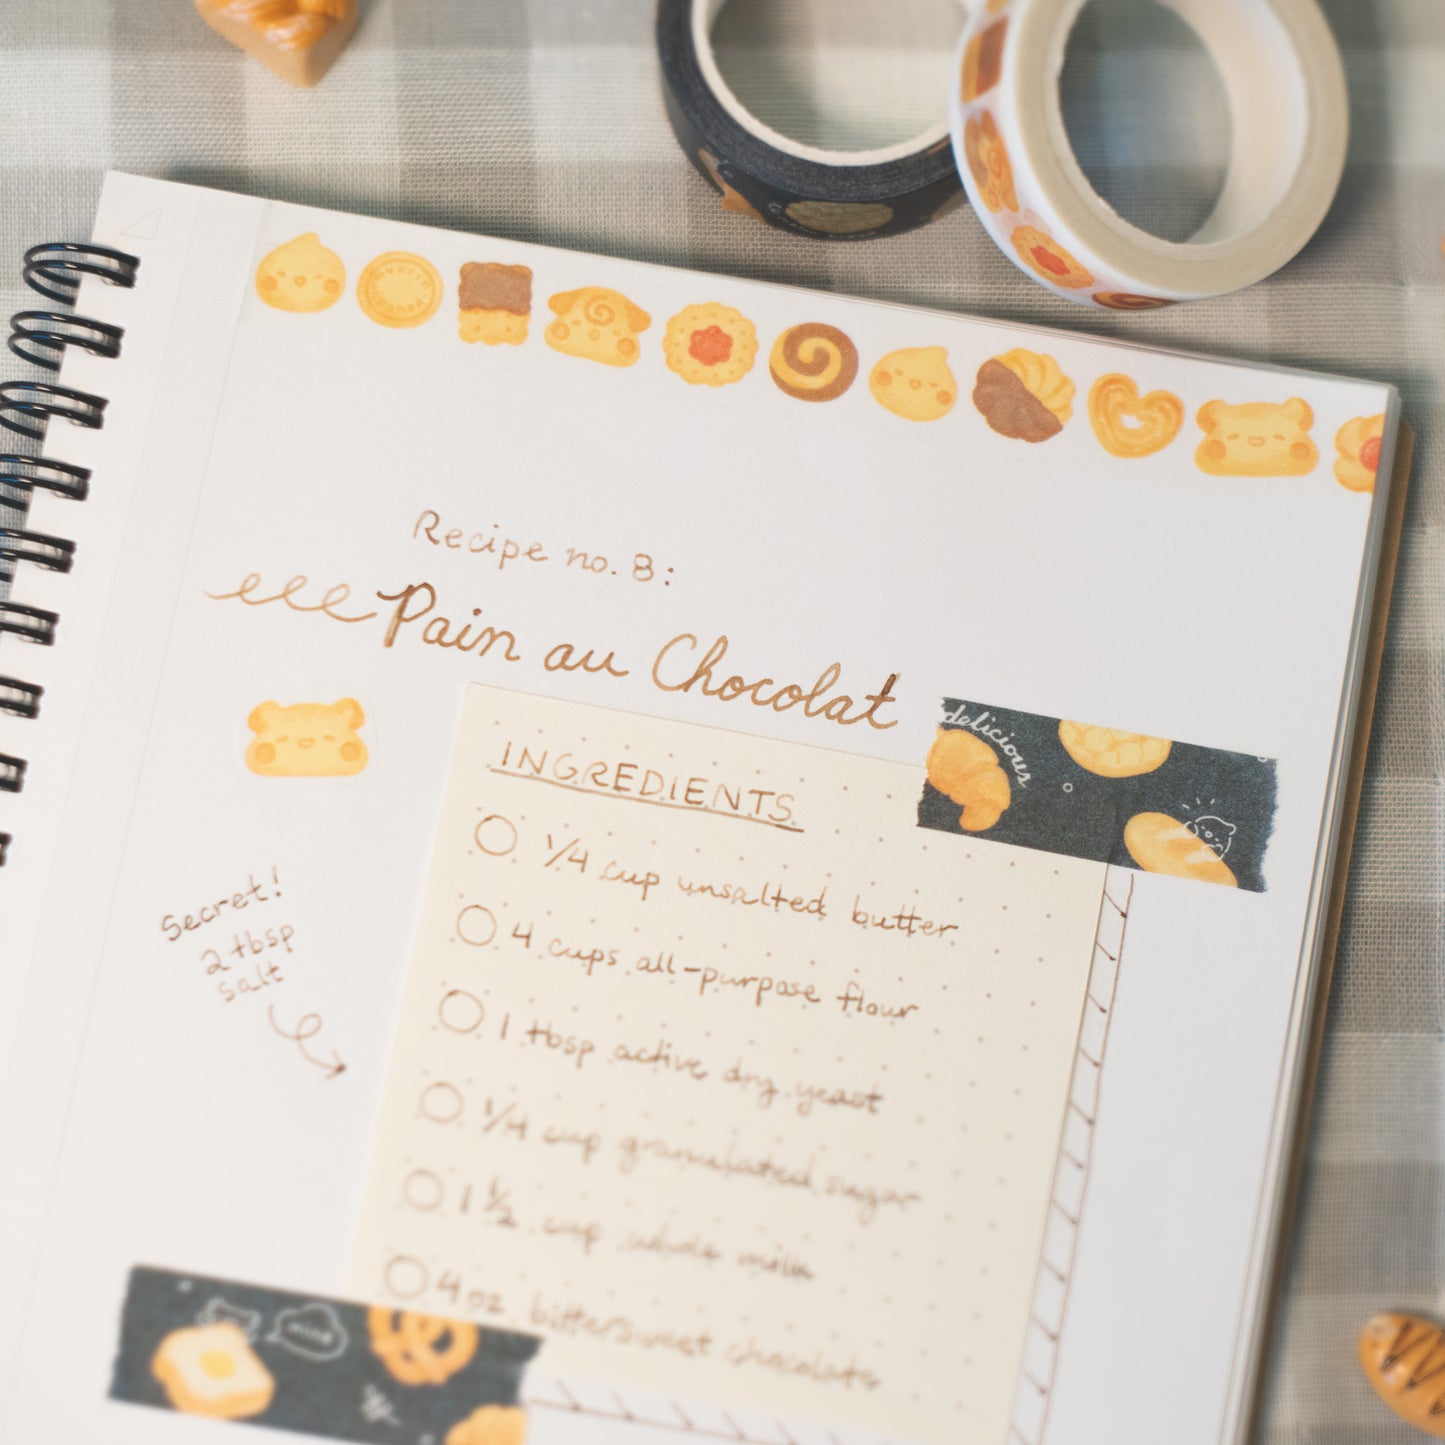 Recipe no. 8:
Pain au Chocolat
delicious
INGREDIENTS
1/4 cup unsalted butter
4 cups all-purpose flour
1 tbsp active dry yeast
1/4 cup granulated sugar
1 1/2 cup whole milk
4 oz bittersweet chocolate
Secret!
2 tbsp
salt
mine